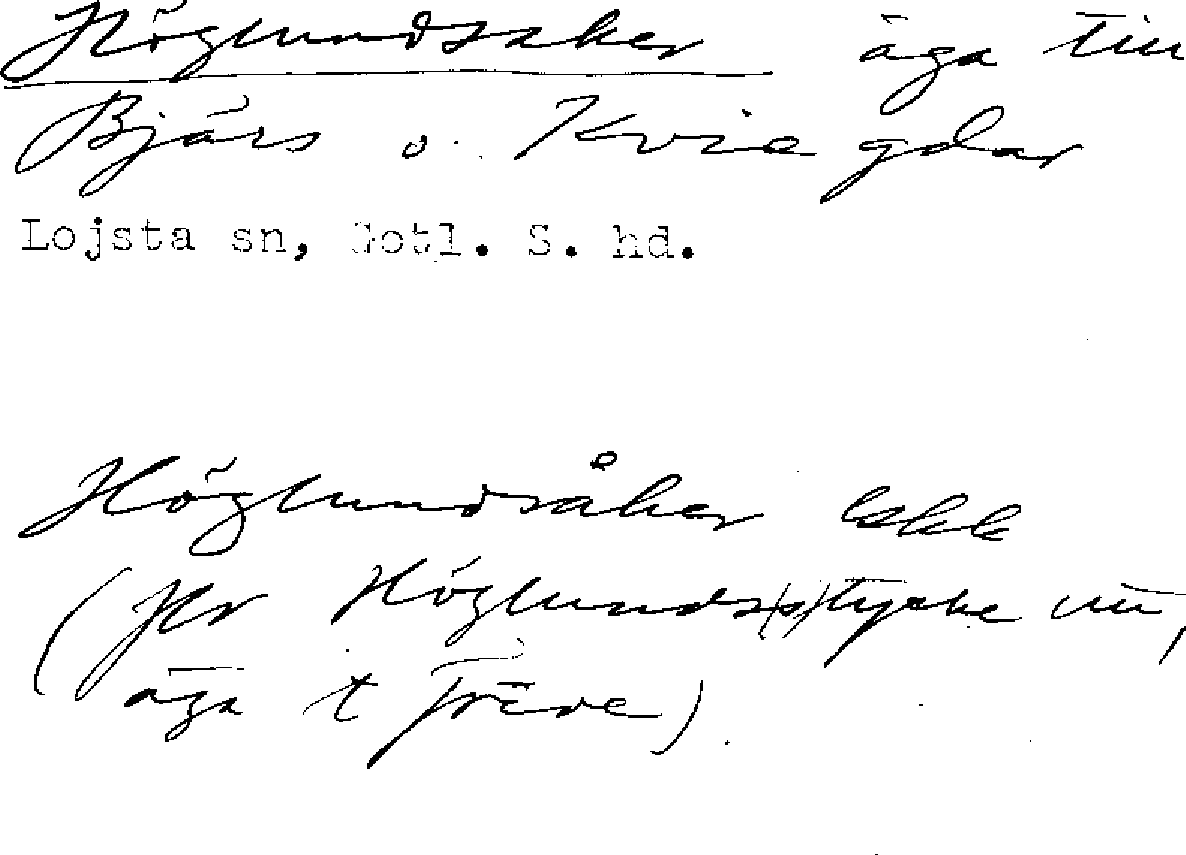 Höglundsaker äga till
Bjärs o. Kvie gdar
Lojsta sn, Gotl. S. hd.
Höglundsåker ekk
(Jfr Höglunds(s)tycke
äga t Träve).